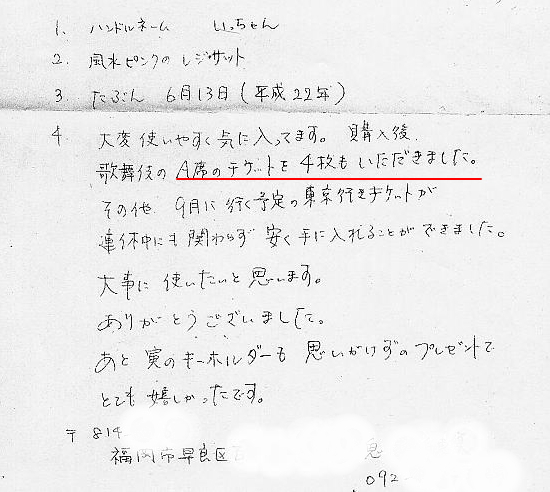 1. ハンドルネーム いっちゃん
2. 風水ピンクの レジサット
3. たぶん 6月13日(平成22年)
4. 大変使いやすく気に入ってます。購入後
歌舞伎の A席のチケットを4枚もいただきました。
その他 9月に行く予定の東京行きチケットが
連休中にも関わらず 安く手に入れることができました。
大事に使いたいと思います。
ありがとうございました。
あと 実のキーホルダーも 思いがけずのプレゼントで
とても嬉しかったです。
〒814
福岡市早良区
092-